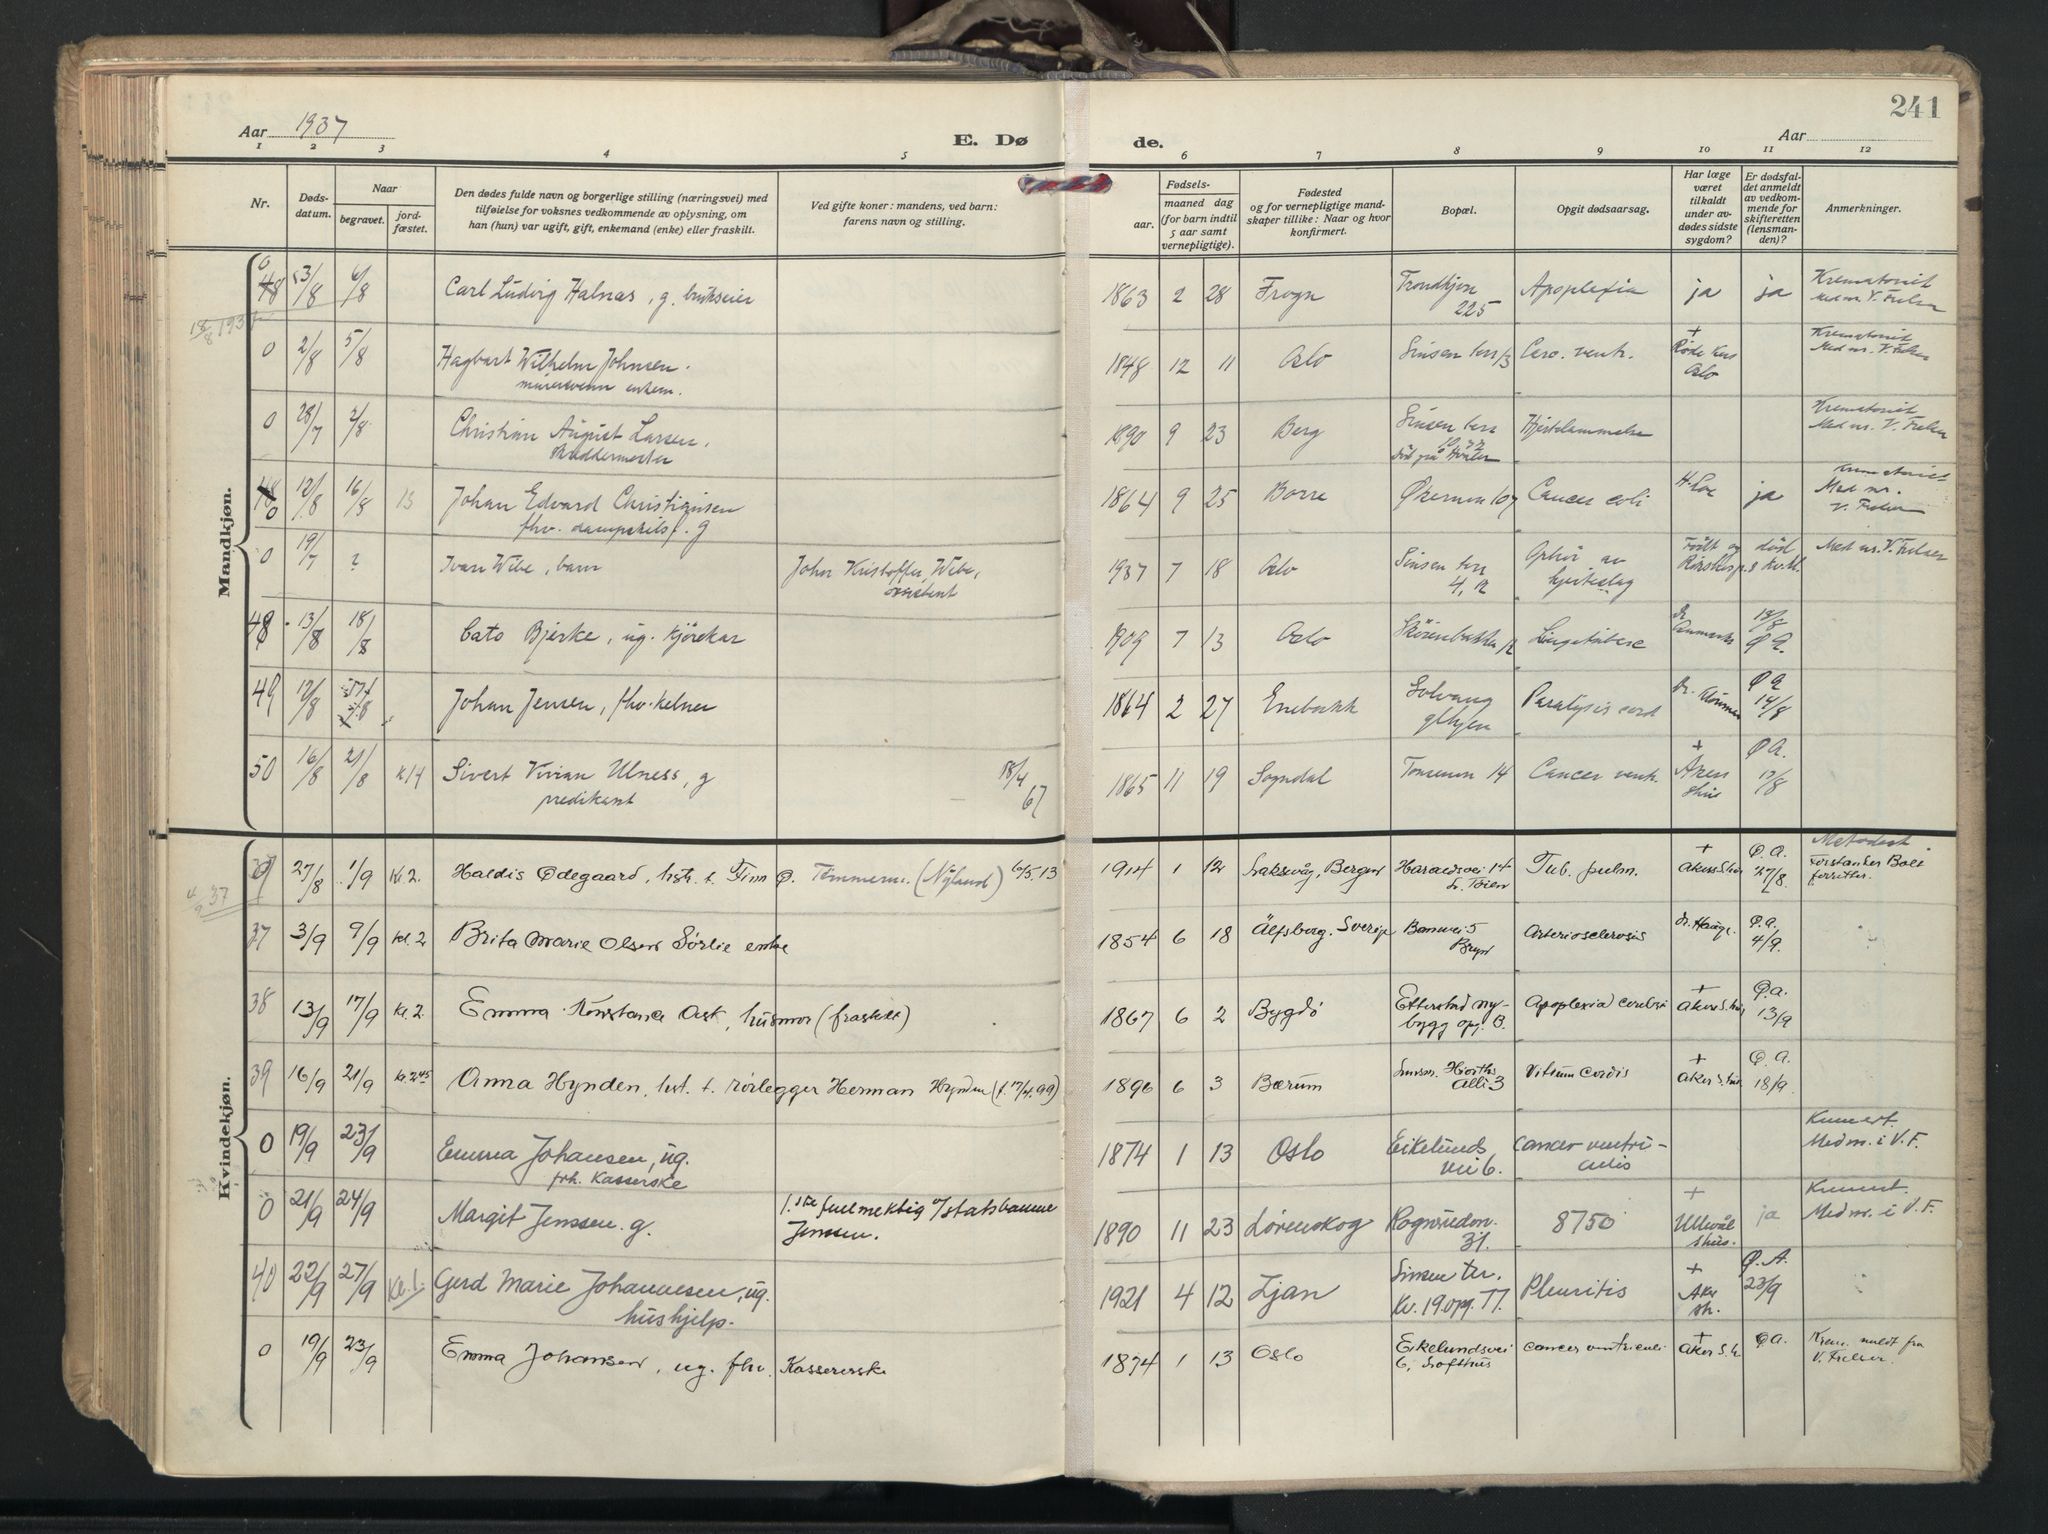 241
Aar 1937
E. Dø
de.
Aar
1 2 3 4 5 6 7 8 9 10 11 12
Nr.
Døds-
datum.
Naar
begravet.
jord-
fæstet.
Den dødes fulde navn og borgerlige stilling (næringsvei) med
tilføielse for voksnes vedkommende av oplysning, om
han (hun) var ugift, gift, enkemand (enke) eller fraskilt.
Ved gifte koner: mandens, ved barn:
farens navn og stilling.
Fødsels-
aar.
maaned dag
(for barn indtil
5 aar samt
vernepligtige).
Fødested
og for vernepligtige mand-
skaper tillike: Naar og hvor
konfirmert.
Bopæl.
Opgit dødsaarsag.
Har læge
været
tilkaldt
under av-
dødes sidste
sygdom?
Er dødsfal-
det anmeldt
av vedkom-
mende for
skifteretten
(lensman-
den)?
Anmerkninger.
Mandkjøn.
0 48 3/8 6/8 Carl Ludvig Halnas, g. brukseier 1863 2 28 Frogn Trondhjem 225 Apoplexia ja ja Krematoriet
Med nr. V. Frelser
18/8 1937
0 2/8 5/8 Hagbart Wilhelm Johnsen.
murersvenn enkem. 1848 12 11 Oslo Sinsen terr 13 Carc. ventr. + Røde Kors
Oslo Krematoriet
Med nr. V. Frelser
0 28/7 2/8 Christian August Larsen,
skreddermester 1890 9 23 Berg Sinsen terr
død på Hvaler Hjertelammelse Krematoriet
Med nr. V. Frelser
48 0 12/8 16/8 13 Johan Edvard Christiansen
fhv. dampskibsf. g 1864 9 25 Borre Økernvn 107 Cancer coli ja Krematoriet
Med nr.
V. Frelser
0 19/7 ? Ivan Wibe, barn John Kristoffer Wibe,
assistent 1937 7 18 Oslo Sinsen terr
4, Ophør av
hjerteslag Født og død
Med nr. V. Frelser
48 13/8 18/8 Cato Bjerke, ug. kjørekar 1909 7 13 Oslo Lungetuberc Dr. 13/8
Ø A.
49 12/8 Johan Jensen, fhv. kelner 1864 2 27 Enebakk Solvang
glhjem Paralysis cord Dr. Ø A
14/8
50 16/8 21/8 kl 4 Sivert Vivian Ulness, g
predikant 18/4
67 1865 11 19 Sogndal Tonsenvn 14 Cancer ventr. + Akers
shus Ø A.
17/8
Kvindekjøn.
27/8 1/9 Kl. 2. Haldis Ødegaard, hstr. t. Finn Ø. Tømmerm. (Nyland) 6/5.13 1914 1 12 Laksevåg, Bergen Haraldsvei 14
Tub. pulm. + Akers S.hus Ø. A.
27/8. Metodist
forstander Bolt
forretter.
4/9 37
37 3/9 9/9 Kl. 2 Brita Marie Olsen Sørlie enke 1854 6 18 Älfsborg. Sverige Banevei 5
Bryn Arteriosclerosis Dr. Hauge. Ø. A.
4/9.
38 13/9 17/9 Kl. 2. Emma Konstance Ask, husmor (fraskilt) 1867 6 2 Bygdø Etterstad ny-
bygg opg. B. Apoplexia cerebri + Aker S. hus Ø. a.
13/9
39 16/9 21/9 Kl. 2 45 Anna Hynden, hst. t. rørlegger Herman Hynden (f. 17/4.99) 1896 6 3 Bærum Hjorths
Allé 3 Vitium cordis + Aker S. hus Ø. A.
18/9.
0 19/9 23/9 Emma Johansen, ug.
frh. Kasserske 1874 1 13 Oslo Eikelunds
vei 6. cancer ventri-
culis Kremert.
Med nr. i V. F.
0 21/9 24/9 Margit Jenssen. g. 1. ste fuelmektig v/ statsbanene
Jenssen. 1890 11 23 Lørenskog Rognerudvn.
31. 8750 + Ullevål
shus. ja Kremert.
Med nr. i V. F.
40 22/9 27/9 Kl. 1. Gerd Marie Johannesen, ug.
hushjelp. 1921 4 12 Ljan Sinsen ter.
Kv. 19 opg. TT. Pleuritis + Aker
sh. Ø. A.
23/9
0 19/9 23/9 Emma Johansen, ug. fhv. Kassererske 1874 1 13 Oslo Eikelundsvei
6, Lofthus cancer ventriculi + Aker S. h Ø A. Krem. meldt fra
V. Frelser.